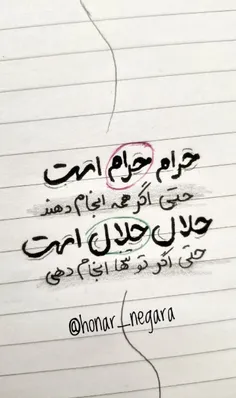 حرام حرام است
حتی اگر همه انجام دهند
حلال حلال است
حتی اگر تو تنها انجام دهی
@honar_negara